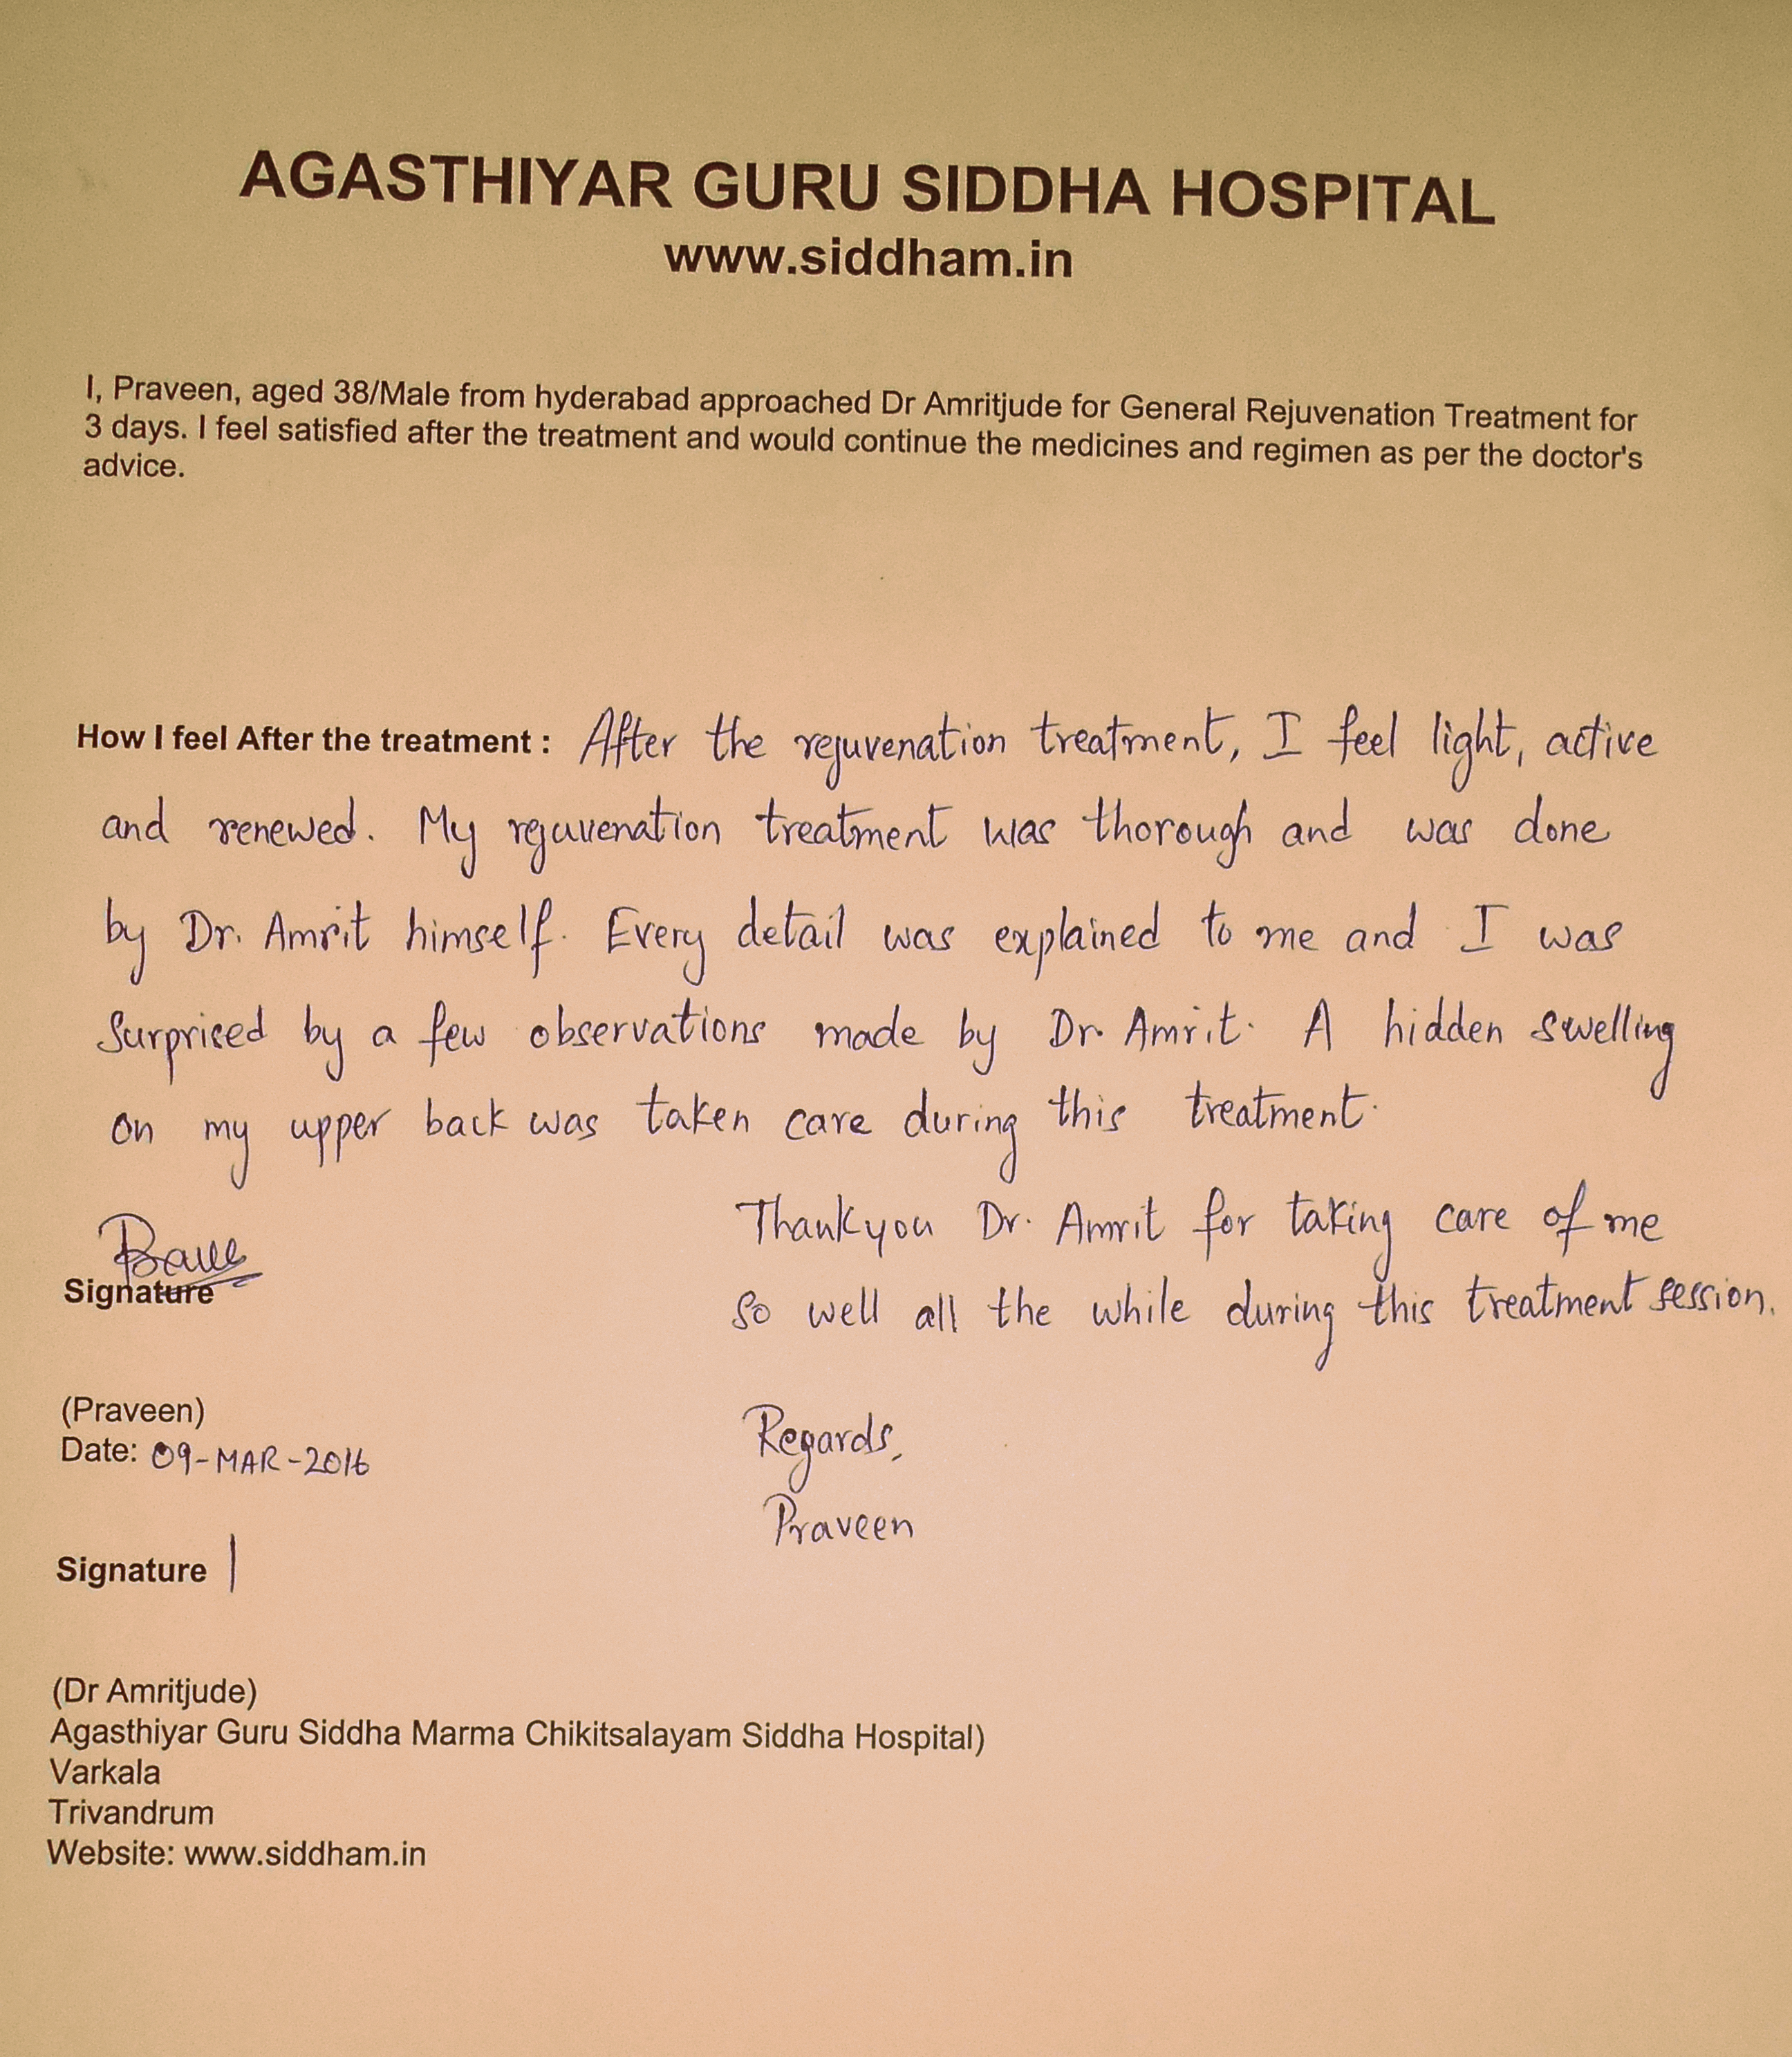 AGASTHIYAR GURU SIDDHA HOSPITAL
www.siddham.in
I, Praveen, aged 38/Male from hyderabad approached Dr Amritjude for General Rejuvenation Treatment for
3 days. I feel satisfied after the treatment and would continue the medicines and regimen as per the doctor's
advice.
How I feel After the treatment : After the rejuvenation treatment, I feel light, active
and renewed. My rejuvenation treatment was thorough and was done
by Dr. Amrit himself. Every detail was explained to me and I was
surprised by a few observations made by Dr. Amrit. A hidden swelling
on my upper back was taken care during this treatment.
Thankyou Dr. Amrit for taking care of me
so well all the while during this treatment session.
Signature
(Praveen)
Date: 09-MAR-2016
Regards,
Praveen
Signature
(Dr Amritjude)
Agasthiyar Guru Siddha Marma Chikitsalayam Siddha Hospital)
Varkala
Trivandrum
Website: www.siddham.in